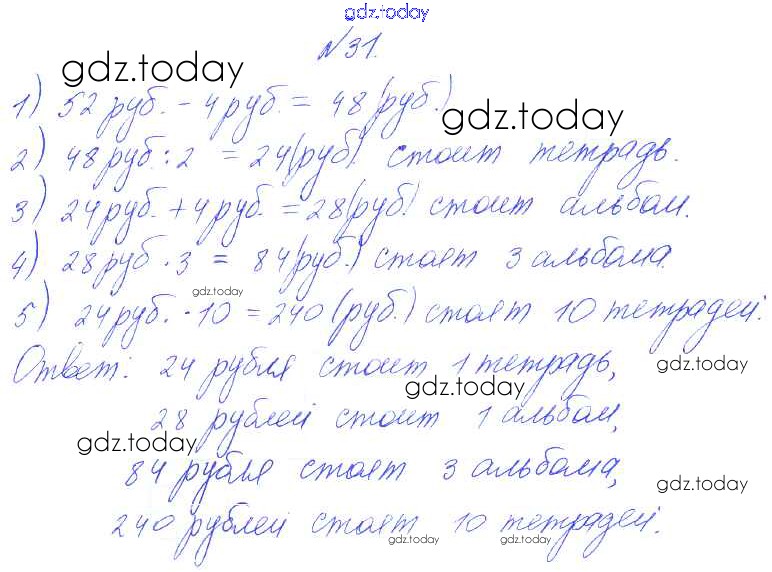 gdz.today
№31.
gdz.today
1) 52 руб. - 4 руб. = 48 (руб.)
gdz.today
2) 48 руб. : 2 = 24 (руб.) стоит тетрадь.
3) 24 руб. + 4 руб. = 28 (руб.) стоит альбом.
4) 28 руб. · 3 = 84 (руб.) стоят 3 альбома.
gdz.today
5) 24 руб. · 10 = 240 (руб.) стоят 10 тетрадей.
Ответ: 24 рубля стоит 1 тетрадь,
gdz.today
gdz.today
28 рублей стоит 1 альбом,
gdz.today
84 рубля стоят 3 альбома,
gdz.today
240 рублей стоят 10 тетрадей.
gdz.today gdz.today